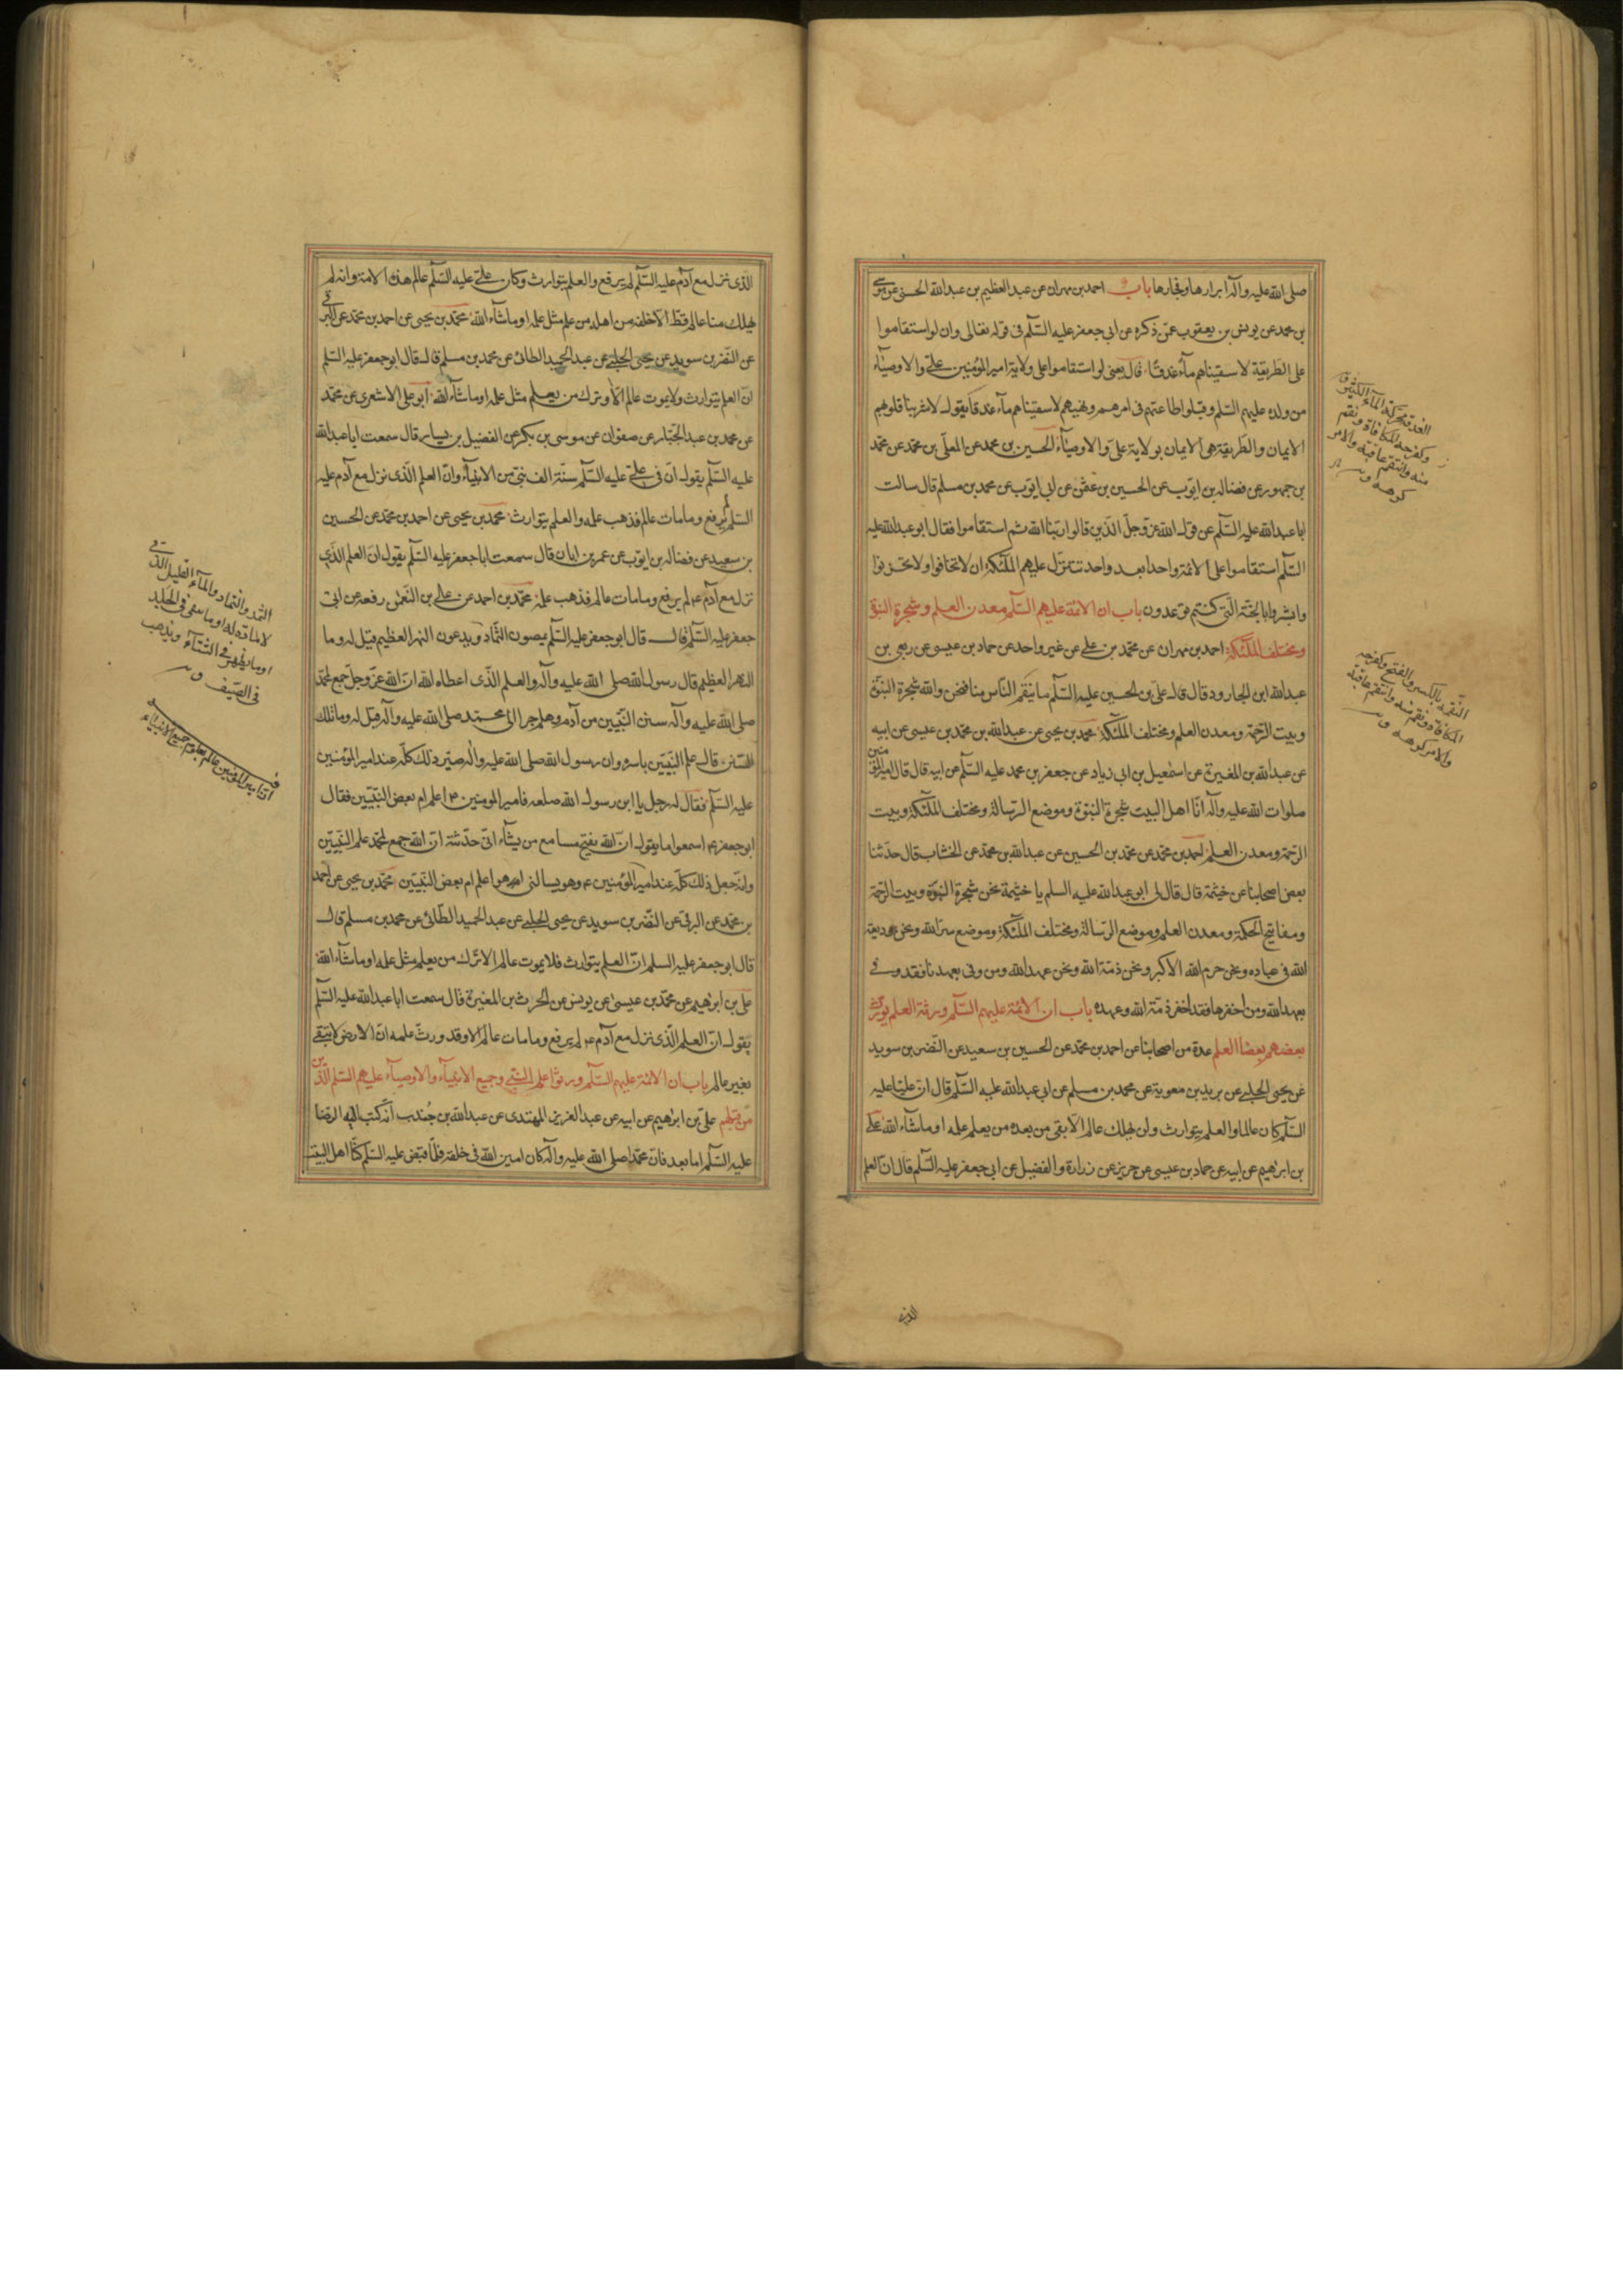 صلى الله عليه وآله ابرارها وفجارها باب احمد بن مهران عن عبد العظيم بن عبد الله الحسنى عن موسى
بن محمد عن يونس بن يعقوب عمن ذكره عن ابي جعفر عليه السلم فى قوله تعالى وان لو استقاموا
على الطريقة لاسقيناهم ماء غدقا قال يعنى لو استقاموا على ولاية امير المؤمنين على والاوصياء
من ولده عليهم السلم وقبلوا طاعتهم فى امرهم ونهيهم لاسقيناهم ماء غدقا يقول لاشربنا قلوبهم
الايمان والطريقة هى الايمان بولاية على والاوصياء الحسين بن محمد عن المعلى بن محمد عن محمد
بن جمهور عن فضاله بن ايوب عن الحسين بن عثمن عن ابى ايوب عن محمد بن مسلم قال سالت
ابا عبد الله عليه السلم عن قول الله عز وجل الذين قالوا ربنا الله ثم استقاموا فقال ابو عبد الله عليه
السلم استقاموا على الائمة واحدا بعد واحد تتنزل عليهم الملئكة ان لا تخافوا ولا تحزنوا
وابشروا بالجنة التى كنتم توعدون باب ان الائمة عليهم السلم معدن العلم وشجرة النبوة
ومختلف الملئكة احمد بن مهران عن محمد بن على عن غير واحد عن حماد بن عيسى عن ربعى بن
عبد الله ابن الجارود قال قال على بن الحسين عليه السلم ما ينقم الناس منا فنحن والله شجرة النبوة
وبيت الرحمة ومعدن العلم ومختلف الملئكة محمد بن يحيى عن عبد الله بن محمد بن عيسى عن ابيه
عن عبد الله بن المغيرة عن اسمعيل بن ابى زياد عن جعفر بن محمد عليه السلم عن ابيه قال قال امير المؤمنين
صلوات الله عليه وآله انا اهل البيت شجرة النبوة وموضع الرسالة ومختلف الملئكة وبيت
الرحمة ومعدن العلم احمد بن محمد عن محمد بن الحسين عن عبد الله بن محمد عن الخشاب قال حدثنا
بعض اصحابنا عن خيثمة قال قال لى ابو عبد الله عليه السلم يا خيثمة نحن شجرة النبوة وبيت الرحمة
ومفاتيح الحكمة ومعدن العلم وموضع الرسالة ومختلف الملئكة وموضع سر الله ونحن وديعة
الله فى عباده ونحن حرم الله الاكبر ونحن ذمة الله ونحن عهد الله ومن وفى بعهدنا فقد وفى
بعهد الله ومن اخفرها فقد اخفر ذمة الله وعهده باب ان الائمة عليهم السلم ورثة العلم يورث
بعضهم بعضا العلم عدة من اصحابنا عن احمد بن محمد عن الحسين بن سعيد عن النضر بن سويد
عن يحيى الحلبى عن بريد بن معوية عن محمد بن مسلم عن ابى عبد الله عليه السلم قال ان عليا عليه
السلم كان عالما والعلم يتوارث ولن يهلك عالم الا بقى من بعده من يعلم علمه او ما شاء الله على
بن ابرهيم عن ابيه عن حماد بن عيسى عن حريز عن زرارة والفضيل عن ابى جعفر عليه السلم قال ان العلم
الذى
الغدق محركة الماء الكثير ق
النقمة بالكسر والفتح وكفرحة
المكافاة ونقم منه وانتقم عاقبه
والامر كرهه
الذى نزل مع آدم عليه السلم لم يرفع والعلم يتوارث وكان على عليه السلم عالم هذه الامة وانه لم
يهلك منا عالم قط الا خلفه من اهله من علم مثل علمه او ما شاء الله محمد بن يحيى عن احمد بن محمد عن البرقى
عن النضر بن سويد عن يحيى الحلبى عن عبد الحميد الطائى عن محمد بن مسلم قال قال ابو جعفر عليه السلم
ان العلم يتوارث ولا يموت عالم الا وترك من يعلم مثل علمه او ما شاء الله ابو على الاشعرى عن محمد
عن محمد بن عبد الجبار عن صفوان عن موسى بن بكر عن الفضيل بن يسار قال سمعت ابا عبد الله
عليه السلم يقول ان فى على عليه السلم سنة الف نبى من الانبياء وان العلم الذى نزل مع آدم عليه
السلم لم يرفع وما مات عالم فذهب علمه والعلم يتوارث محمد بن يحيى عن احمد بن محمد عن الحسين
بن سعيد عن فضاله بن ايوب عن عمر بن ابان قال سمعت ابا جعفر عليه السلم يقول ان العلم الذى
نزل مع آدم ع لم يرفع وما مات عالم فذهب علمه محمد بن احمد عن على بن النعمن رفعه عن ابى
جعفر عليه السلم قال قال ابو جعفر عليه السلم يمصون الثماد ويدعون النهر العظيم قيل له وما
النهر العظيم قال رسول الله صلى الله عليه وآله والعلم الذى اعطاه الله ان الله عز وجل جمع لمحمد
صلى الله عليه وآله سنن النبيين من آدم وهلم جرا الى محمد صلى الله عليه وآله قيل له وما تلك
السنن قال علم النبيين باسره وان رسول الله صلى الله عليه واله صير ذلك كله عند امير المؤمنين
عليه السلم فقال له رجل يا ابن رسول الله صلعم فامير المومنين ع اعلم ام بعض النبيين فقال
ابو جعفر ع اسمعوا ما يقول ان الله يفتح مسامع من يشاء انى حدثته ان الله جمع لمحمد علم النبيين
وانه جعل ذلك كله عند امير المؤمنين ع وهو يسالنى اهو اعلم ام بعض النبيين محمد بن يحيى عن احمد
بن محمد عن البرقى عن النضر بن سويد عن يحيى الحلبى عن عبد الحميد الطائى عن محمد بن مسلم قال
قال ابو جعفر عليه السلم ان العلم يتوارث فلا يموت عالم الا ترك من يعلم مثل علمه او ما شاء الله
على بن ابرهيم عن محمد بن عيسى عن يونس عن الحرث بن المغيرة قال سمعت ابا عبد الله عليه السلم
يقول ان العلم الذى نزل مع آدم ع لم يرفع وما مات عالم الا وقد ورث علمه ان الارض لا تبقى
بغير عالم باب ان الائمة عليهم السلم ورثوا علم النبى وجميع الانبياء والاوصياء عليهم السلم الذين
من قبلهم على بن ابرهيم عن ابيه عن عبد العزيز المهتدى عن عبد الله بن جندب انه كتب اليه الرضا
عليه السلم اما بعد فان محمدا صلى الله عليه وآله كان امين الله فى خلقه فلما قبض عليه السلم كنا اهل البيت
الثمد والثماد والماء القليل الذى
لا مادة له او ما يبقى فى الجلد
او ما يظهر فى الشتاء ويذهب
فى الصيف
ان امير المؤمنين عالم بعلوم جميع الانبياء